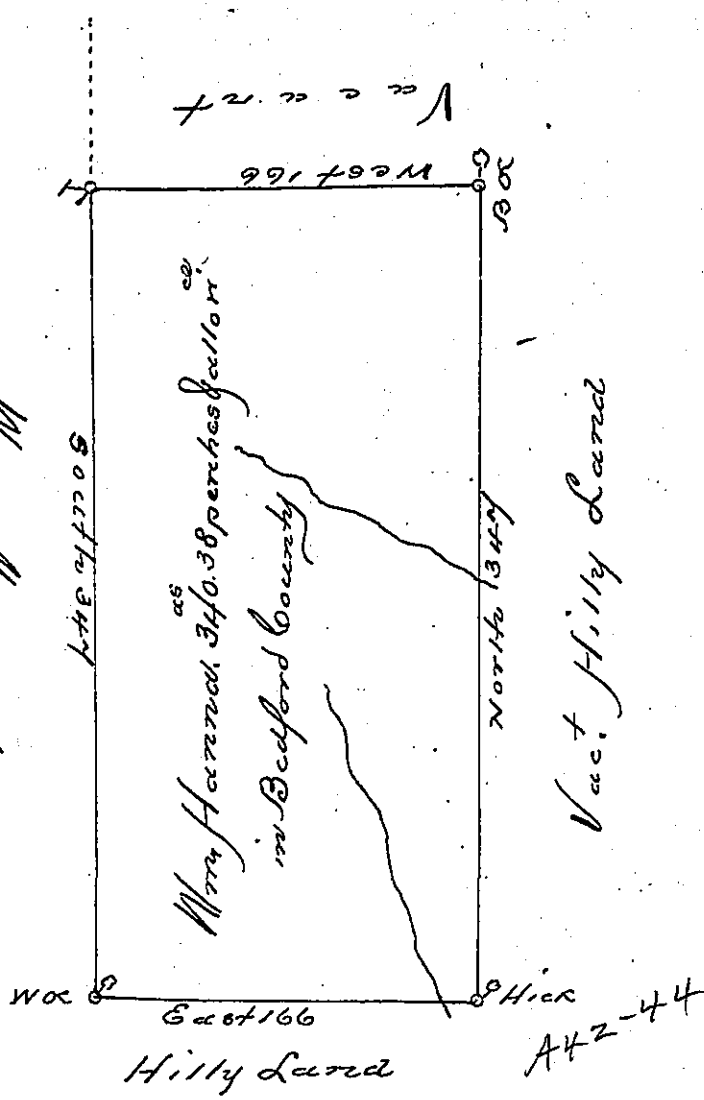 Vacant
West 166
BO
South 347
Wm. Hanna. 340.38 perches & allonce.
as
in Bedford County
North 347
Vact. Hilly Land
WO
East 166
Hick
Hilly Land
A42-44